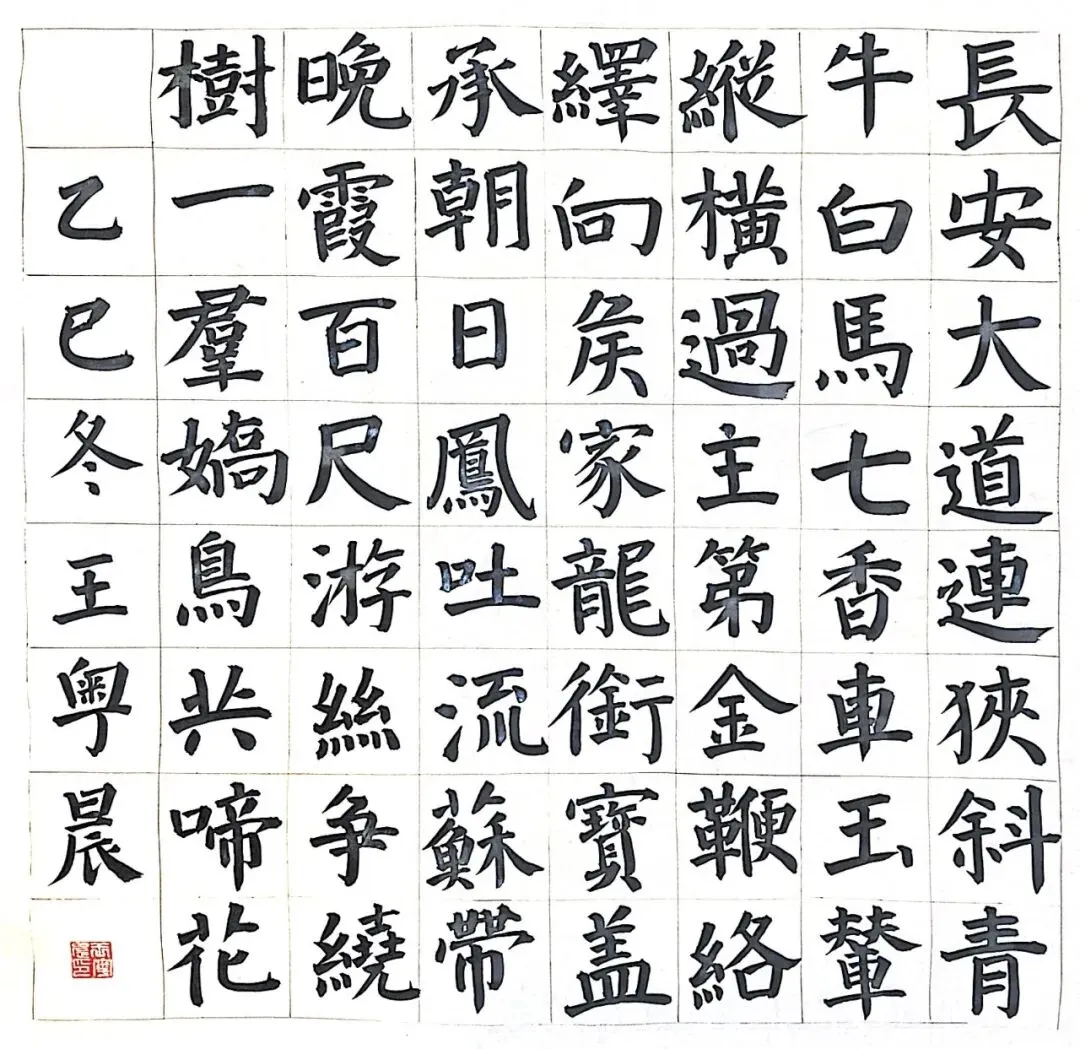 長安大道連狹斜青
牛白馬七香車玉輦
縱橫過主第金鞭絡
繹向侯家龍銜寶盖
承朝日鳳吐流蘇帶
晚霞百尺游絲争繞
樹一羣嬌鳥共啼花
乙巳冬王粵晨